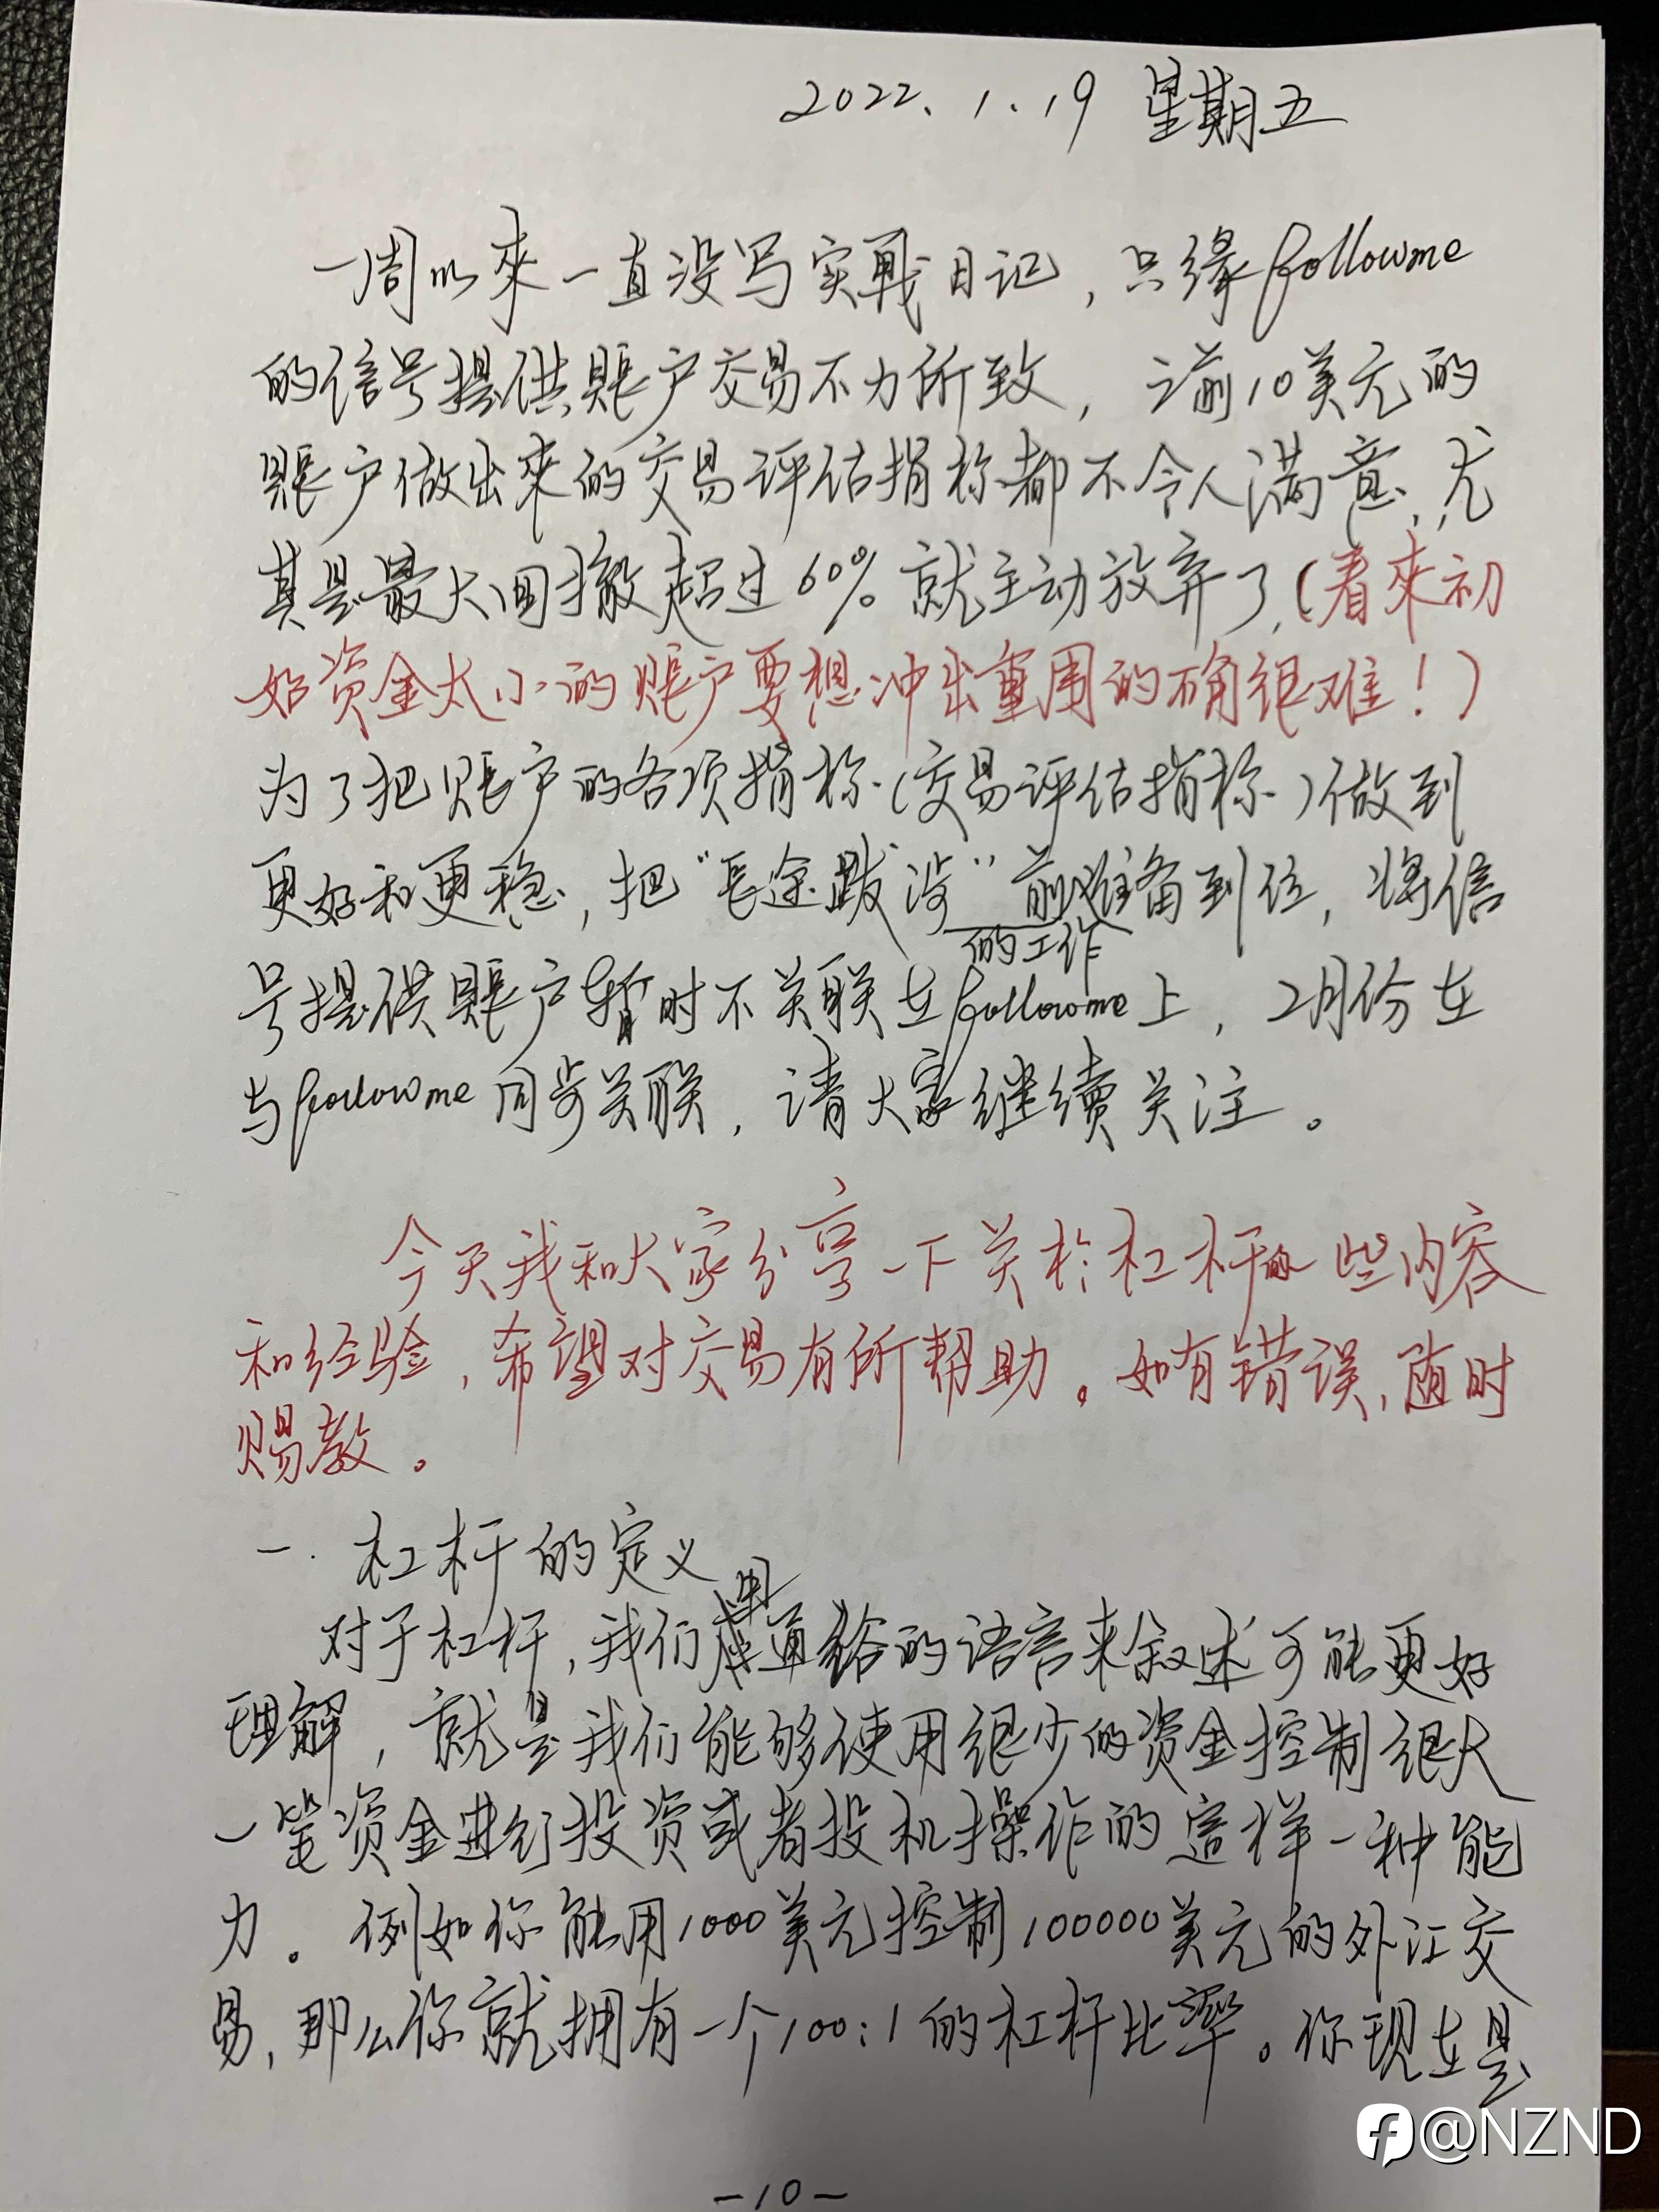 2022.1.19 星期五
一周以來一直没写实戰日记,只缘followme
的信号提供賬户交易不力所致,之前10美元的
賬户做出來的交易评估指标都不令人满意,尤
其是最大回撤超过60%就主动放弃了,(看來初
始资金太小的賬户要想冲出重围的确很难!)
为了把賬户的各项指标(交易评估指标)做到
更好和更稳,把“長途跋涉”前的工作准备到位,将信
号提供賬户暂时不关联在followme上,2月份在
与followme同步关联,请大家继续关注。
今天我和大家分享一下关於杠杆的一些内容
和经验,希望对交易有所帮助。如有错误,随时
赐教。
一.杠杆的定义
对于杠杆,我们用通俗的语言来叙述可能更好
理解,就是我们能够使用很少的资金控制很大
一笔资金进行投资或者投机操作的這样一种能
力。例如你能用1000美元控制100000美元的外汇交
易,那么你就拥有一个100:1的杠杆比率。你现在是
-10-
@NZND